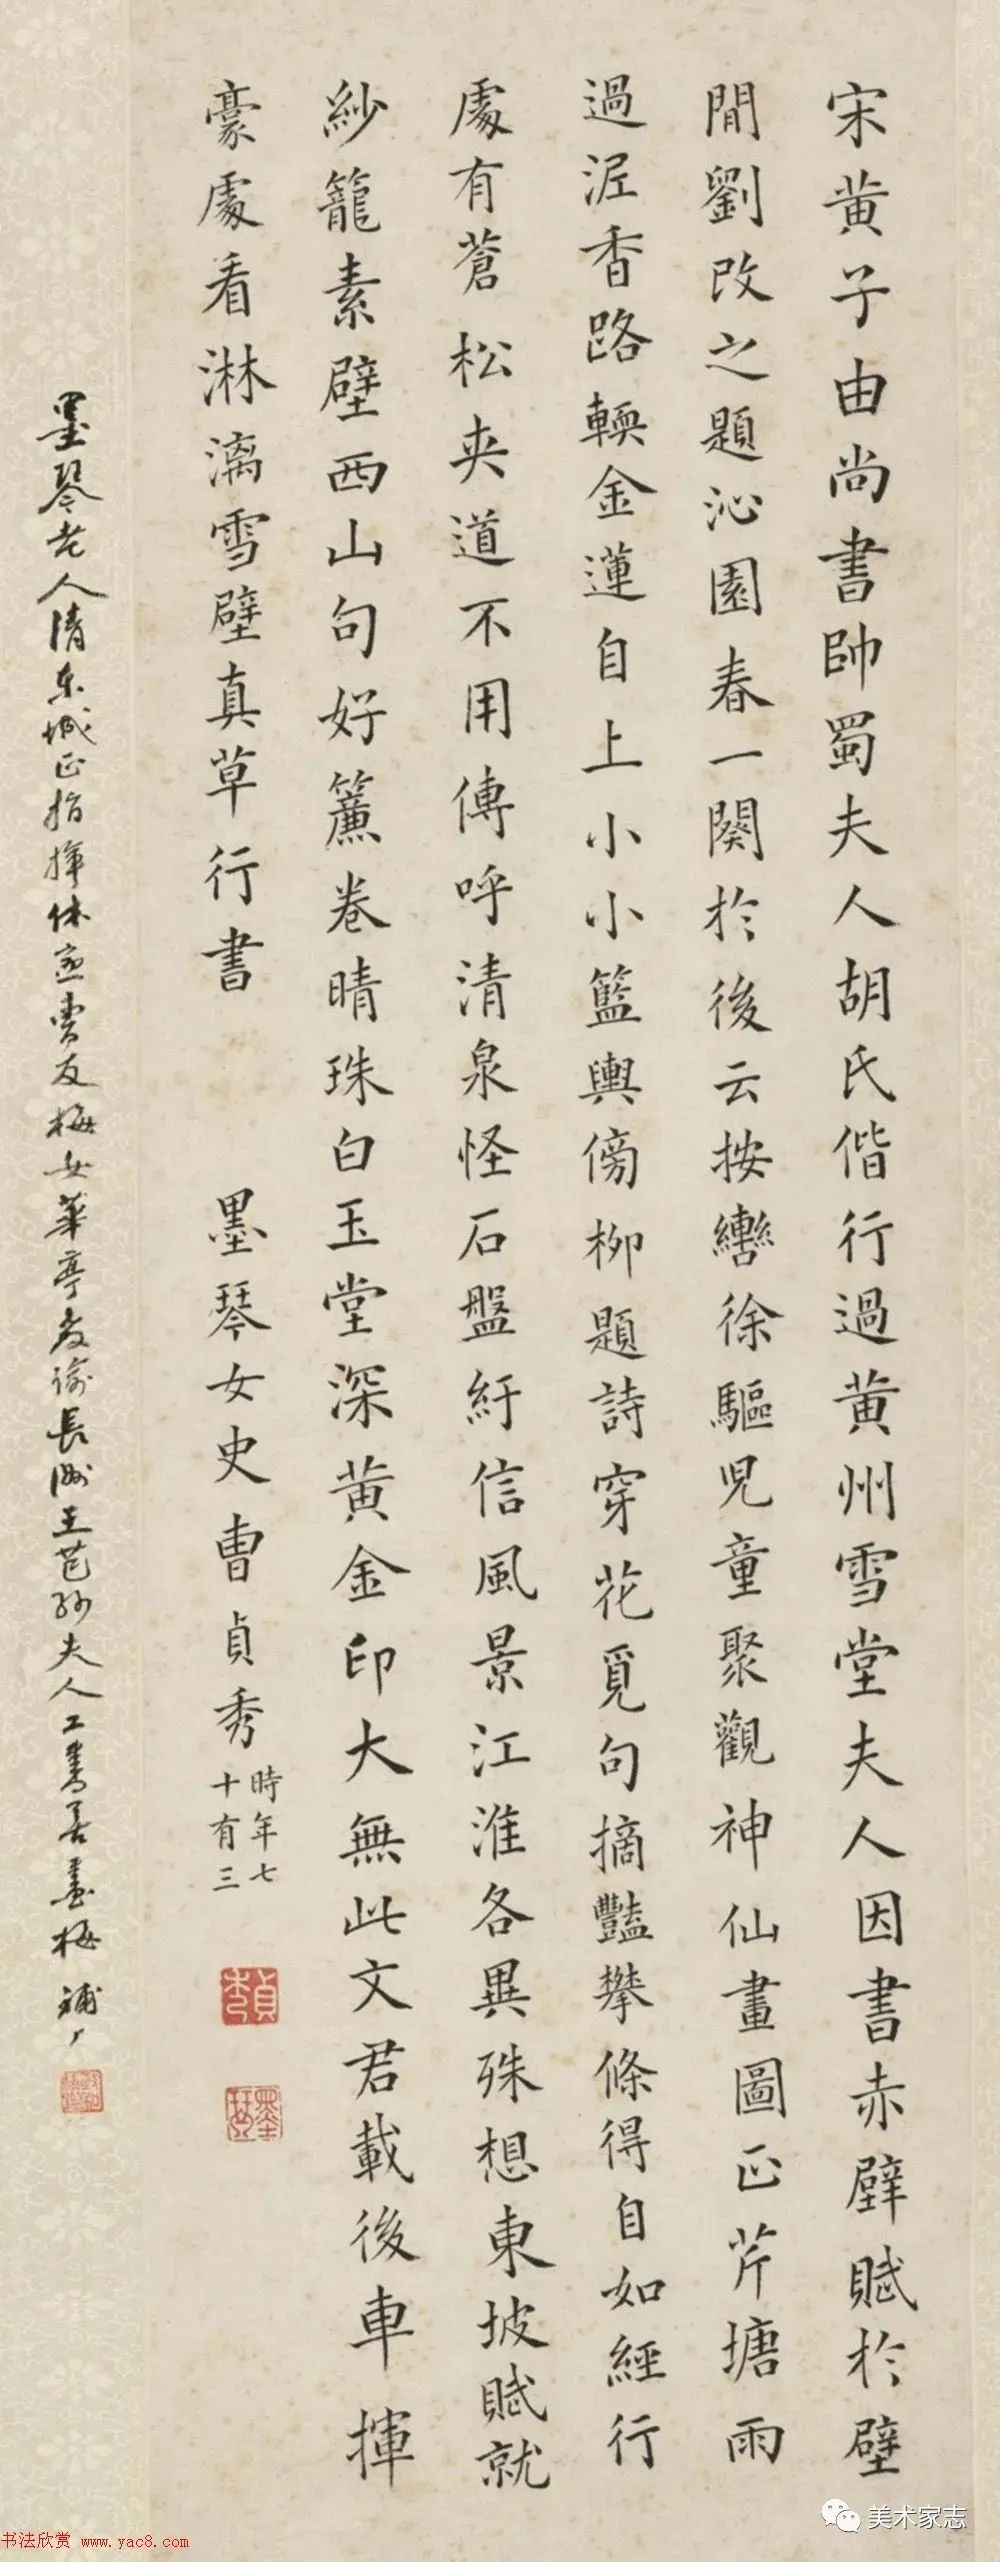 宋黄子由尚書帥蜀夫人胡氏偕行過黄州雪堂夫人因書赤壁賦於壁
間劉改之題沁園春一闋於後云按轡徐驅児童聚觀神仙畫圖正芹塘雨
過泥香路輭金蓮自上小小籃輿傍柳題詩穿花覓句摘豔攀條得自如經行
處有蒼松夾道不用傳呼清泉怪石盤紆信風景江淮各異殊想東坡賦就
紗籠素壁西山句好簾卷晴珠白玉堂深黄金印大無此文君載後車揮
豪處看淋漓雪壁真草行書
墨琴女史曹貞秀
時年七
十有三
貞秀
墨琴
墨琴老人清東城正指揮休寧曹友梅女華亭教諭長洲王芑孫夫人工書善畫梅
美术家志
书法欣赏 www.yac8.com